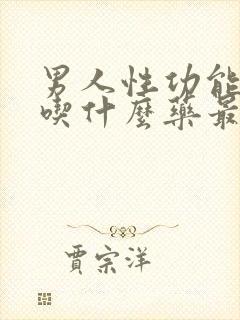 男人性功能
喫什麼藥最
賈宗洋